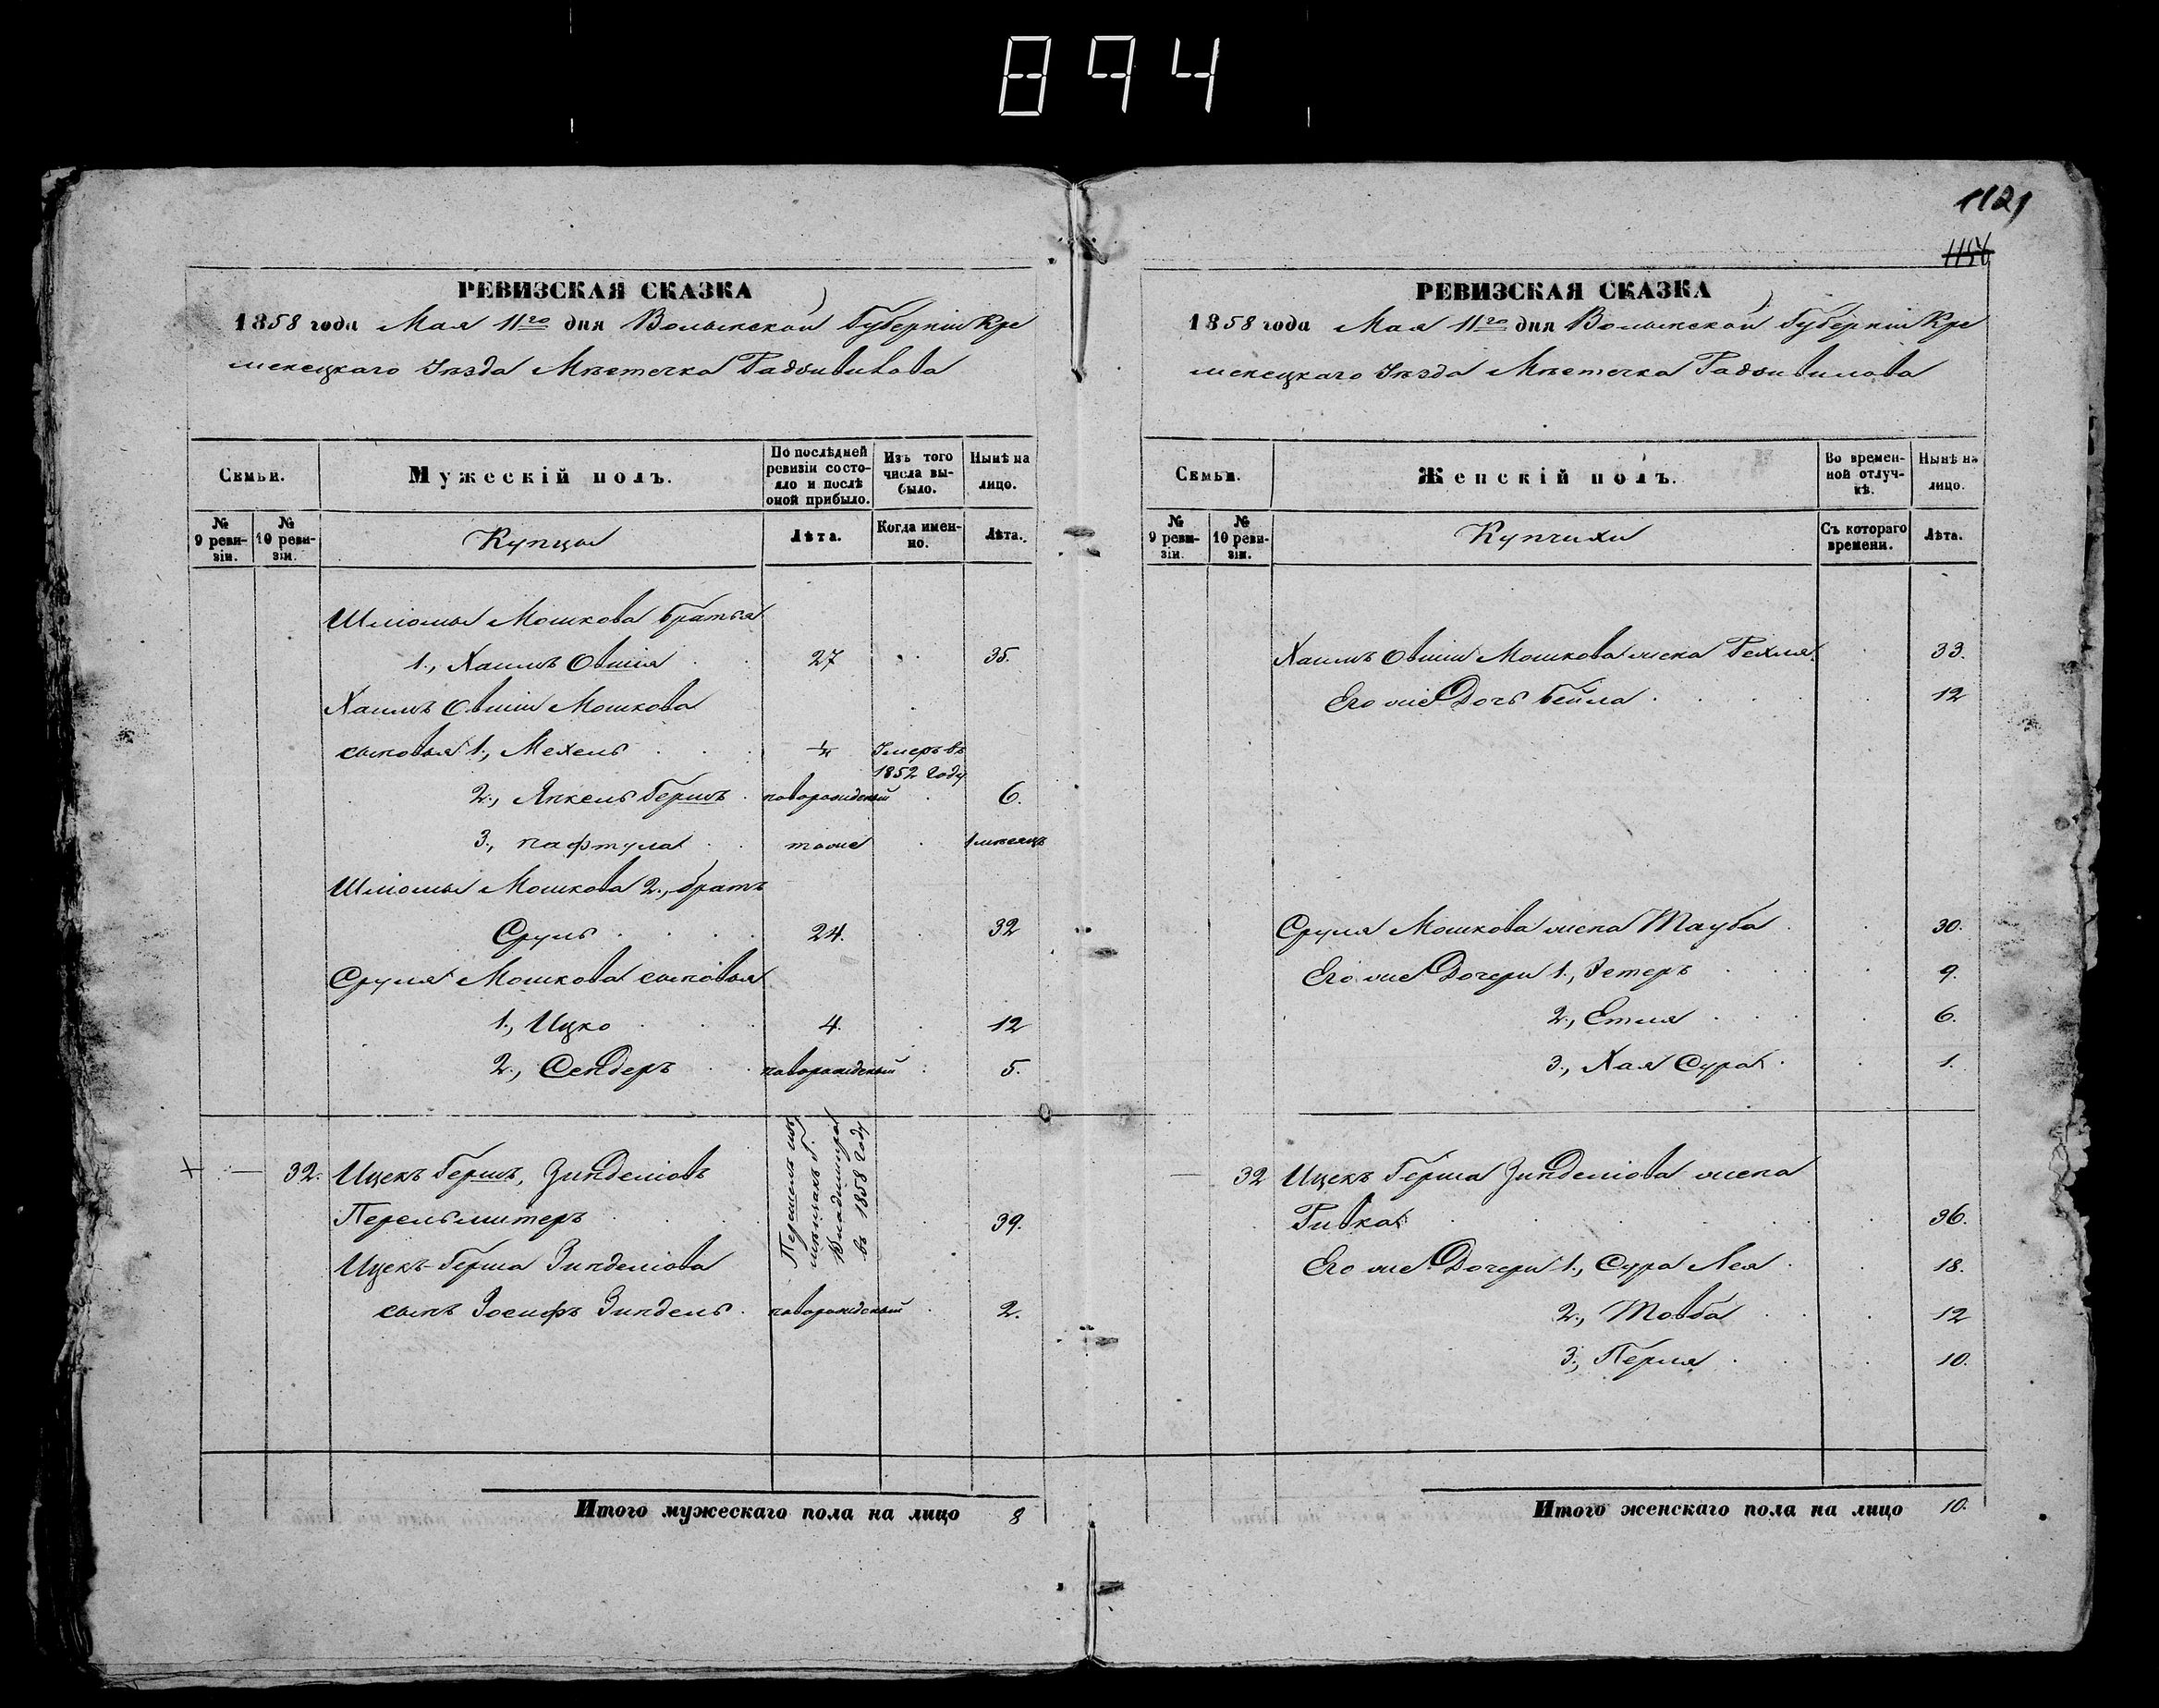 894
1121
1156
РЕВИЗСКАЯ СКАЗКА
1858 года Мая 11го дня Волынской Губерніи Кре
менецкаго Уѣзда Мѣстечка Радзивилова
Семьи.
Мужескій полъ.
По послѣдней ревизіи состояло и послѣ оной прибыло.
Изъ того числа выбыло.
Нынѣ на лицо.
№ 9 ревизіи.
№ 10 ревизіи.
Купцы
Лѣта.
Когда именно.
Лѣта.
Шліомы Мошкова братья
1., Хаимъ Овшія 27 35.
Хаимъ Овшіи Мошкова
сыновья 1., Мехель 4 Умеръ въ
1852 году
2., Янкель Гершъ новорожденый 6.
3., Нафтула тоже 1 мѣсяцъ
Шліомы Мошкова 2., братъ
Сруль 24. 32
Сруля Мошкова сыновья
1., Ицко 4. 12
2., Сендеръ новорожденый 5.
32. Ицекъ Гершъ, Зинделіовъ
Перельмитеръ 39.
Ицекъ-Герша Зинделіова
сынъ Іосифъ Зиндель новорожденый 2.
Владимира
въ 1858 году
Итого мужескаго пола на лицо 8
РЕВИЗСКАЯ СКАЗКА
1858 года Мая 11го дня Волынской Губерніи Кре
менецкаго Уѣзда Мѣстечка Радзивилова
Семьи.
Женскій полъ.
Во временной отлучкѣ.
Нынѣ на лицо.
№ 9 ревизіи.
№ 10 ревизіи.
Купчихи
Съ котораго времени.
Лѣта.
Хаимъ Овшіи Мошкова жена Рехля 33.
Его же Дочь Бейла 12
Сруля Мошкова жена Тауба 30.
Его же Дочери 1., Эстеръ 9.
2., Етля 6.
3., Хая Сура 1.
32 Ицекъ Герша Зинделіова жена
Ривка 36.
Его же Дочери 1., Сура Лея 18.
2., Товба 12
3., Перля 10.
Итого женскаго пола на лицо 10.